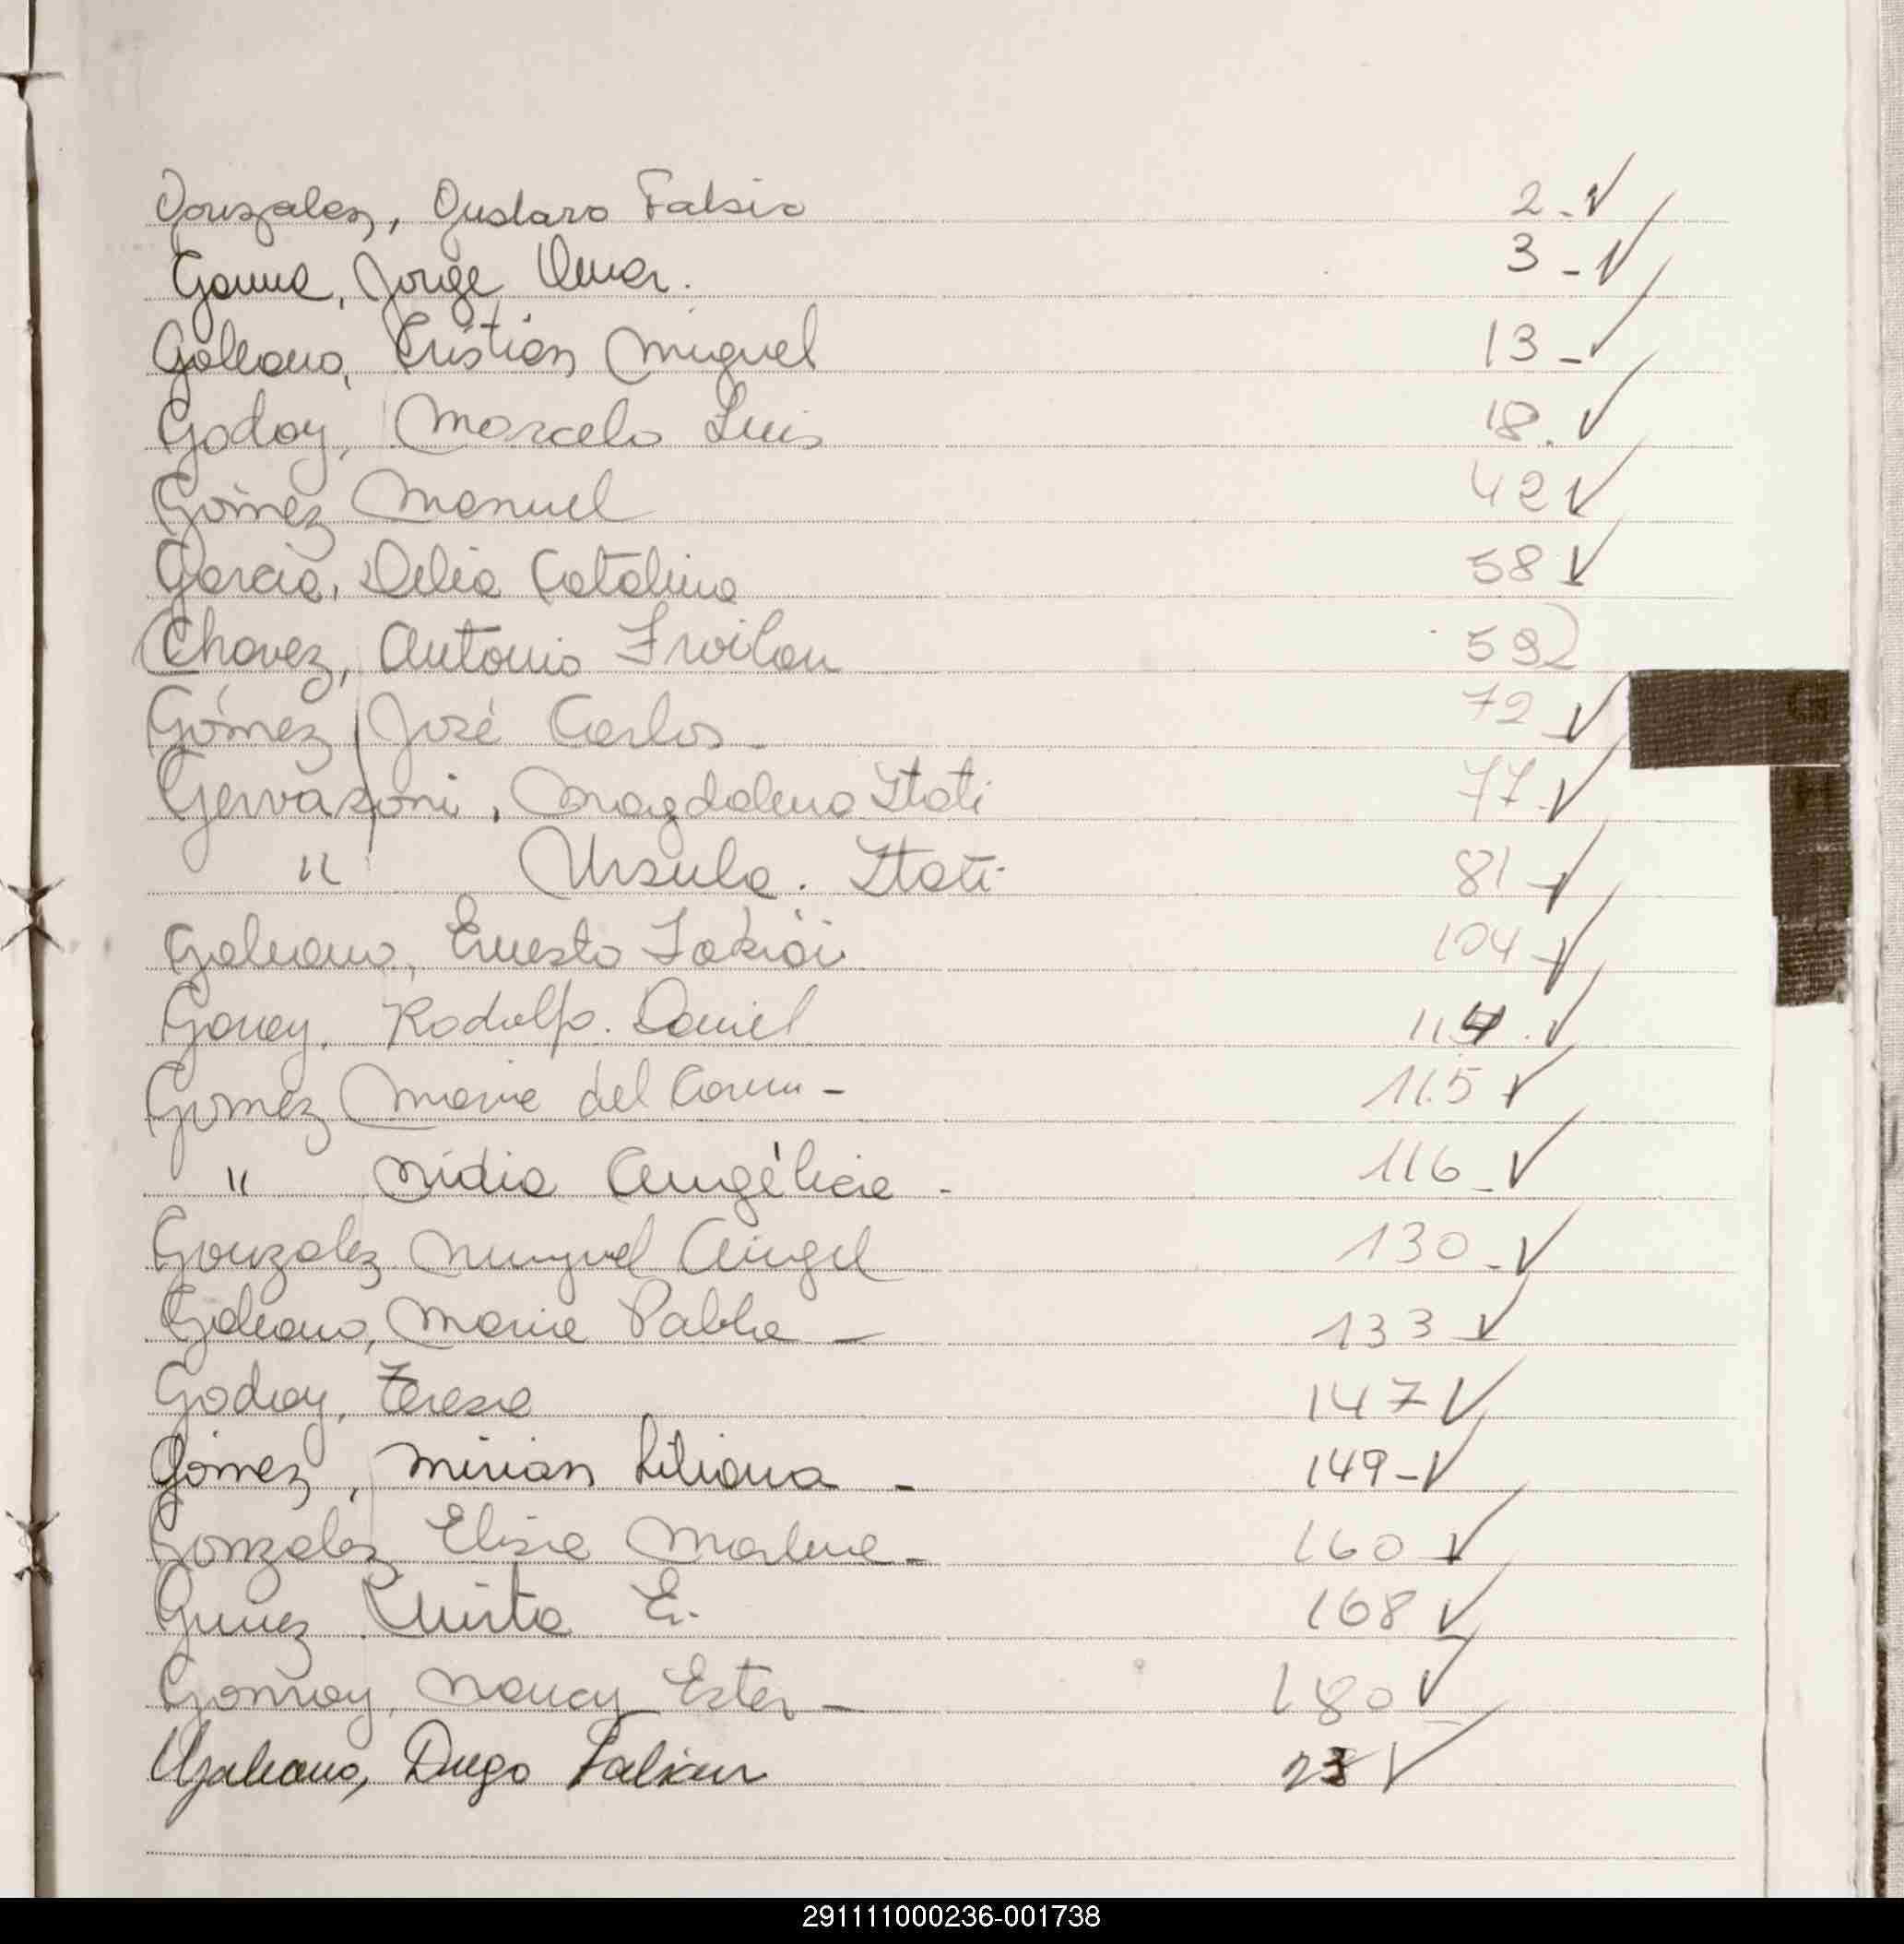 Gonzalez, Gustavo Fabio 2.
Gauna, Jorge Omar. 3 -
Galeano, Cristian Miguel 13 -
Godoy, Marcelo Luis 18.
Gómez Manuel 42
Garcia, Delia Catalina 58
(Chavez, Antonio Froilan 59)
Gómez José Carlos - 72
Gervasoni, Magdalena Itati 77
" Ursula. Itati 81
Galeano, Ernesto Fabián 104
Rodolfo. Daniel 114.
Gomez Maria del Carm - 115
" Nidia Angélica - 116
Gonzalez Miguel Angel 130
Galeano, Maria Pabla - 133
Godoy, Teresa 147
Gómez, Mirian Liliana - 149 -
Gonzalez Elisa Marlene - 160
Mirta E. 168
Nancy Ester - 180
Galeano, Diego Fabian 23
G
H
291111000236-001738